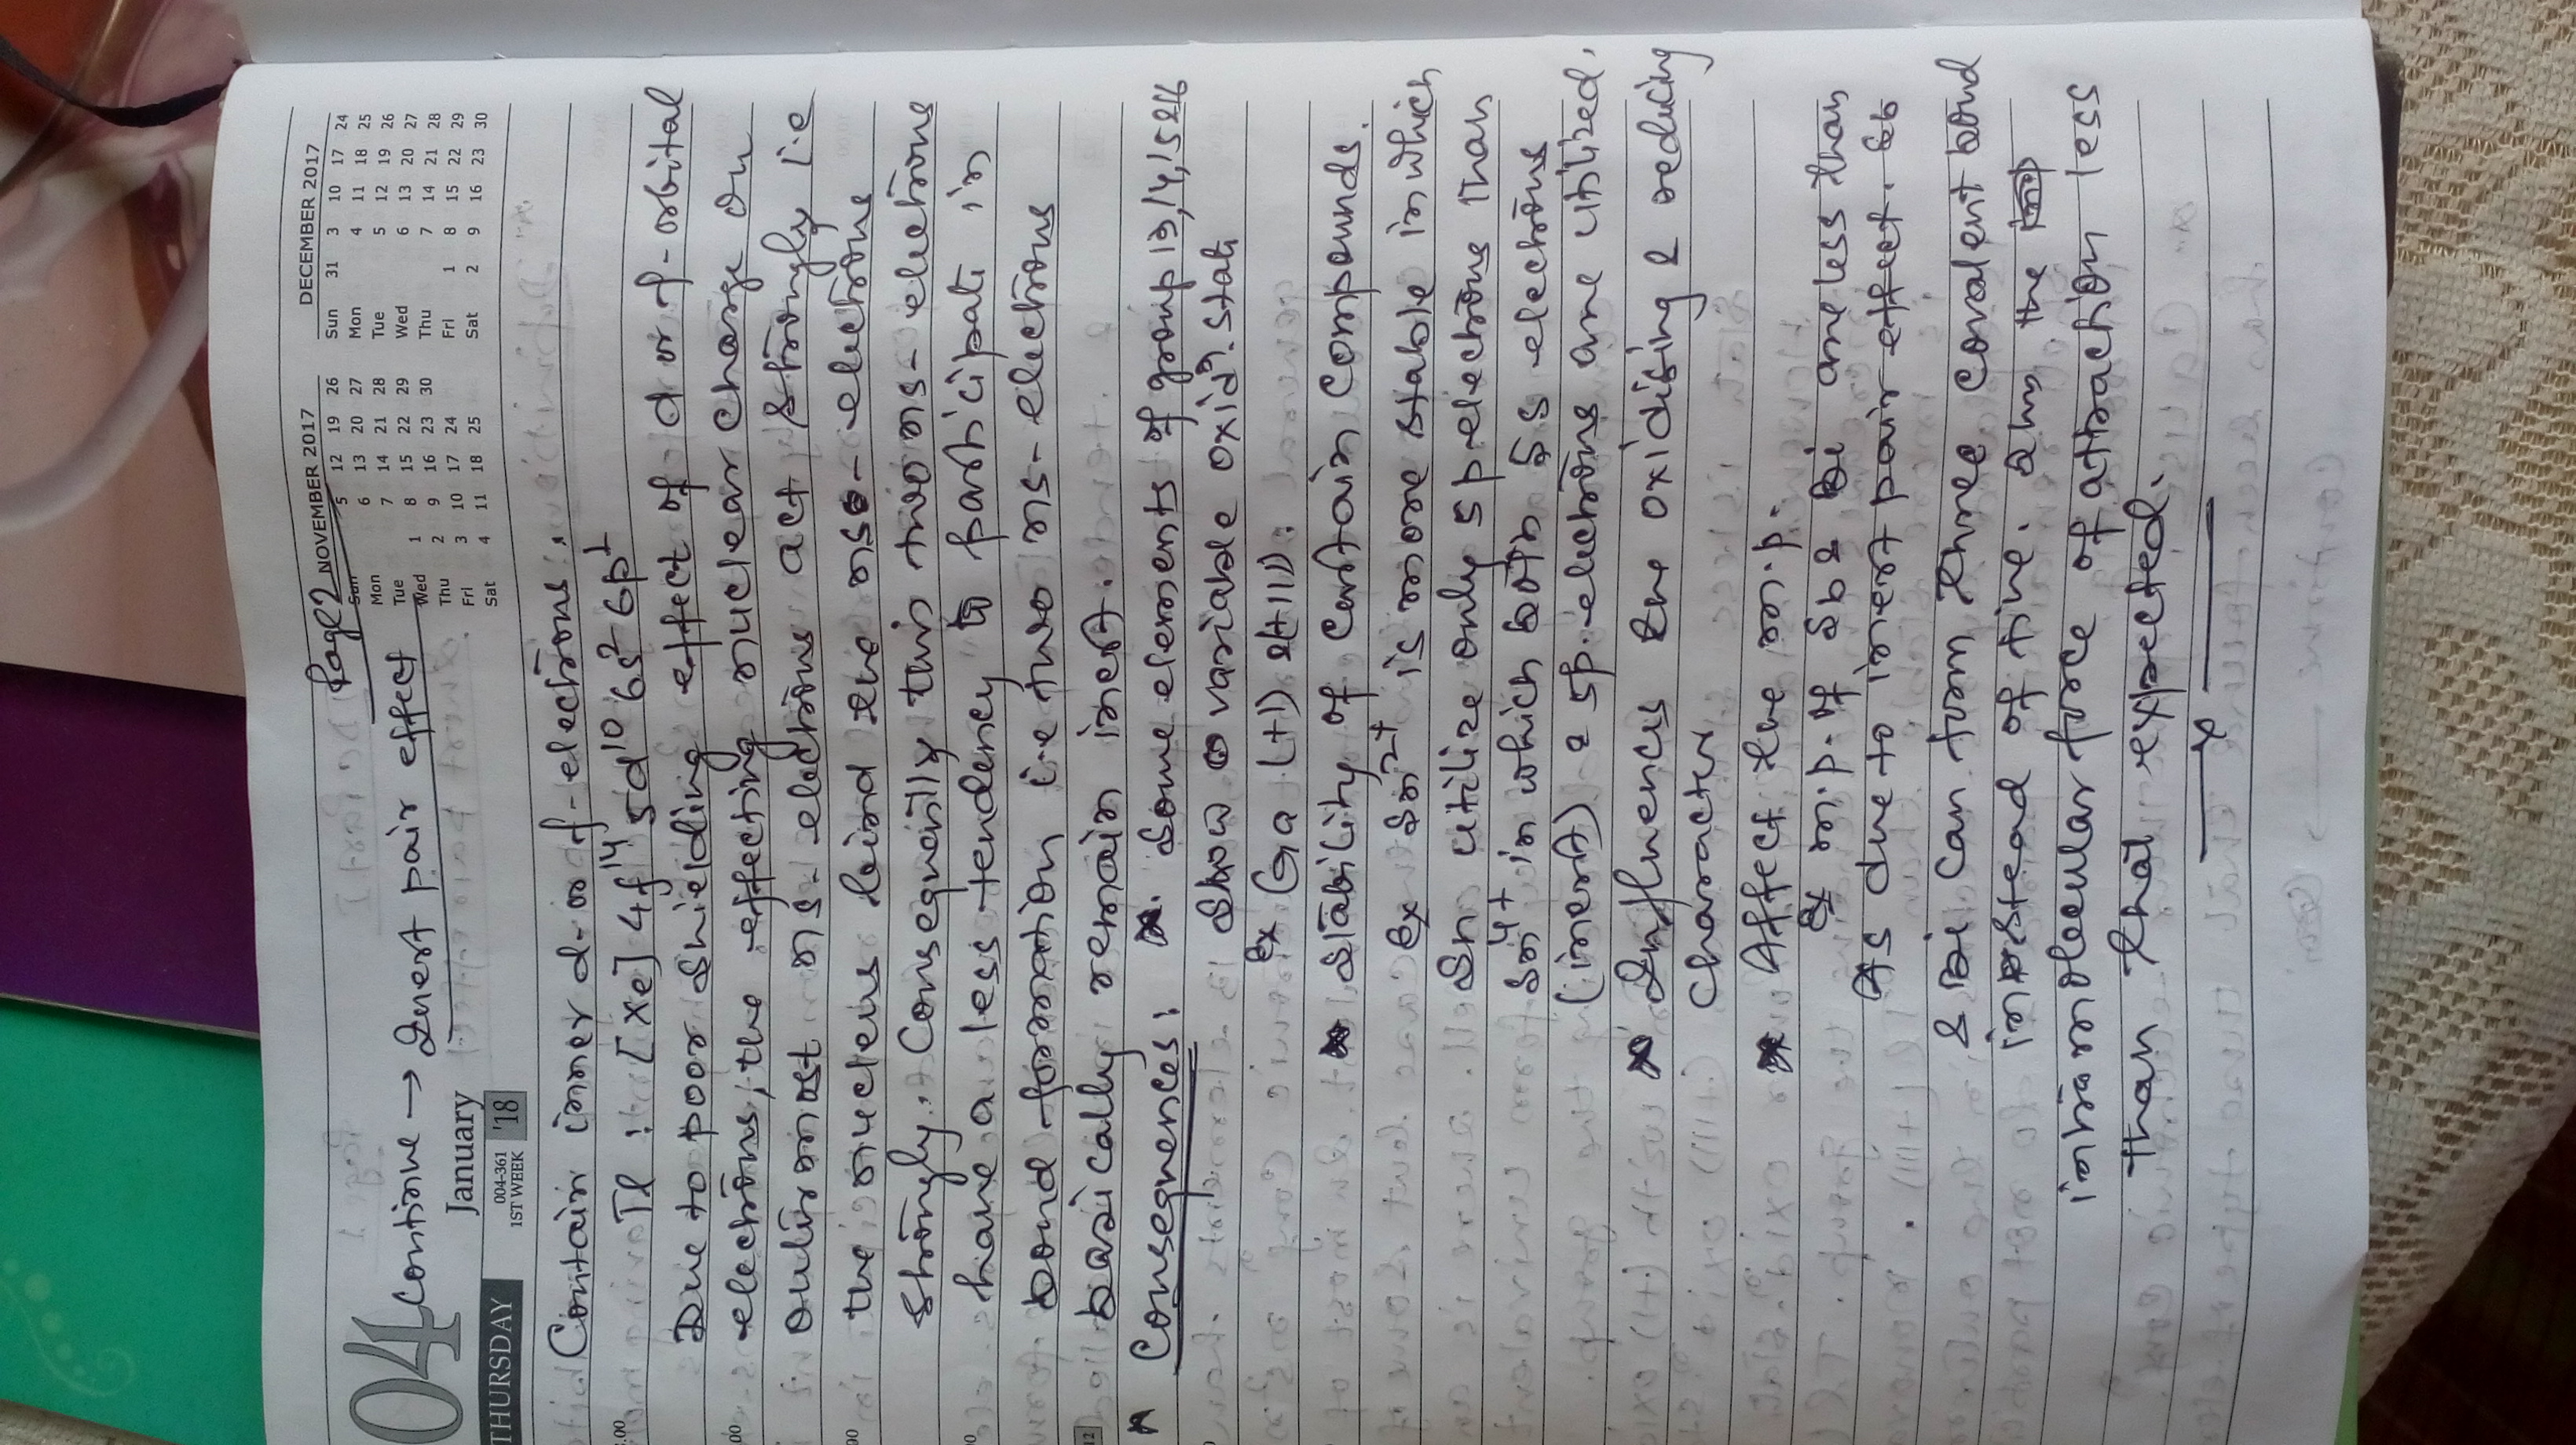 Page 2
04
January
THURSDAY
004-361
1ST WEEK
'18
NOVEMBER 2017
Sun 5 12 19 26
Mon 6 13 20 27
Tue 7 14 21 28
Wed 1 8 15 22 29
Thu 2 9 16 23 30
Fri 3 10 17 24
Sat 4 11 18 25
DECEMBER 2017
Sun 31 3 10 17 24
Mon 4 11 18 25
Tue 5 12 19 26
Wed 6 13 20 27
Thu 7 14 21 28
Fri 1 8 15 22 29
Sat 2 9 16 23 30
Continue → Inert pair effect
Contain inner d- or f-electrons.
Tl : [Xe] 4f14 5d10 6s2 6p1
Due to poor shielding effect of d or f-orbital
electrons, the effecting nuclear charge on
outermost ns-electrons act strongly i.e
the nucleus bind the ns-electrons
strongly. Consequently this two ns-electrons
have a less tendency to participate in
bond formation i.e two ns-electrons
basically remain inert.
Consequences: Some elements of group 13,14,15&16
Show variable oxidn. state
Ex Ga (+1) &(+III)
Stability of Certain Compounds.
Ex Sn2+ is more stable in which
Sn utilize only 5p electrons than
Sn4+ in which both 5s electrons
(inert) & 5p-electrons are utilized.
Influences the oxidising & reducing
Character
Affect the m.p.
Ex m.p. of Sb & Bi are less than
As due to inert pair effect. Sb
& Bi can form three covalent bond
instead of five. the
intramolecular force of attraction less
than that expected.
—x—